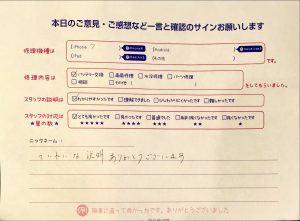 本日のご意見・ご感想など一言と確認のサインお願いします
修理機種は
iPhone 7
Android
iPad
その他
です。
修理内容は
バッテリー交換 画面修理 水没修理 パーツ修理
その他
をしてもらいました。
スタッフの説明は
わかりやすかったです 理解できました 難しかったです
スタッフの対応は
★星の数★
とても良かったです 良かったです 普通でした 良くなかったです
★★★★★ ★★★★ ★★★ ★★ ★
ニックネーム:
ていねいな説明ありがとうございます
ありがとうございました